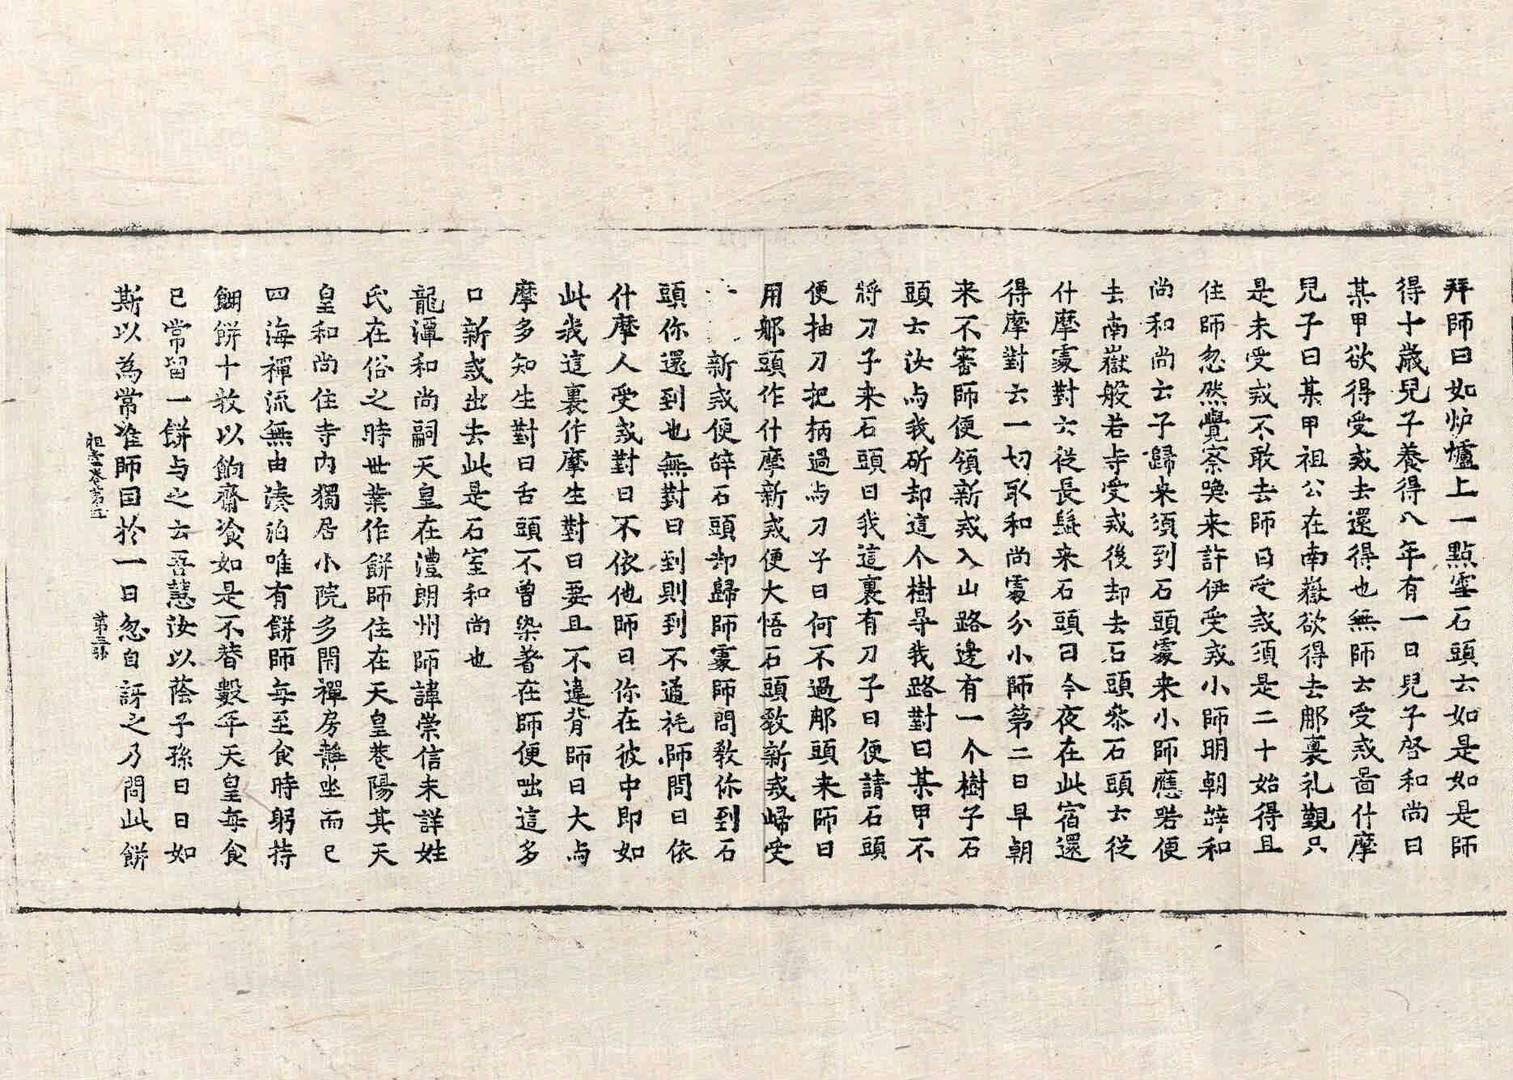 拜師曰如炉爐上一點雪石頭云如是如是師
得十歲兒子養得八年有一日兒子啓和尚曰
某甲欲得受戒去還得也無師云受戒啚什摩
兒子曰某甲祖公在南嶽欲得去那裏礼覲只
是未受戒不敢去師曰受戒須是二十始得且
住師忽然覺察喚来許伊受戒小師明朝辞和
尚和尚云子歸来須到石頭處来小師應喏便
去南嶽般若寺受戒後却去石頭叅石頭云從
什摩處對云從長髭来石頭曰今夜在此宿還
得摩對云一切取和尚處分小師第二日早朝
来不審師便領新戒入山路邊有一个樹子石
頭云汝与我斫却這个樹㝵我路對曰某甲不
將刀子来石頭曰我這裏有刀子曰便請石頭
便抽刀把柄過与刀子曰何不過那頭来師曰
用那頭作什摩新戒便大悟石頭教新戒歸受
新戒便辞石頭却歸師處師問教你到石
頭你還到也無對曰到則到不通秏師問曰依
什摩人受戒對曰不依他師曰你在彼中即如
此我這裏作摩生對曰要且不違背師曰大与
摩多知生對曰舌頭不曾染著在師便咄這多
口新戒出去此是石室和尚也
龍潭和尚嗣天皇在澧朗州師諱崇信未詳姓
氏在俗之時世業作餅師住在天皇巷陽其天
皇和尚住寺內獨居小院多閇禪房静坐而已
四海禪流無由湊泊唯有餅師每至食時躬持
餬餅十枚以餉齋飡如是不替數年天皇每食
已常留一餅与之云吾慧汝以蔭子孫日日如
斯以為常准師囙於一日忽自訝之乃問此餅
祖堂卷第五 第三張